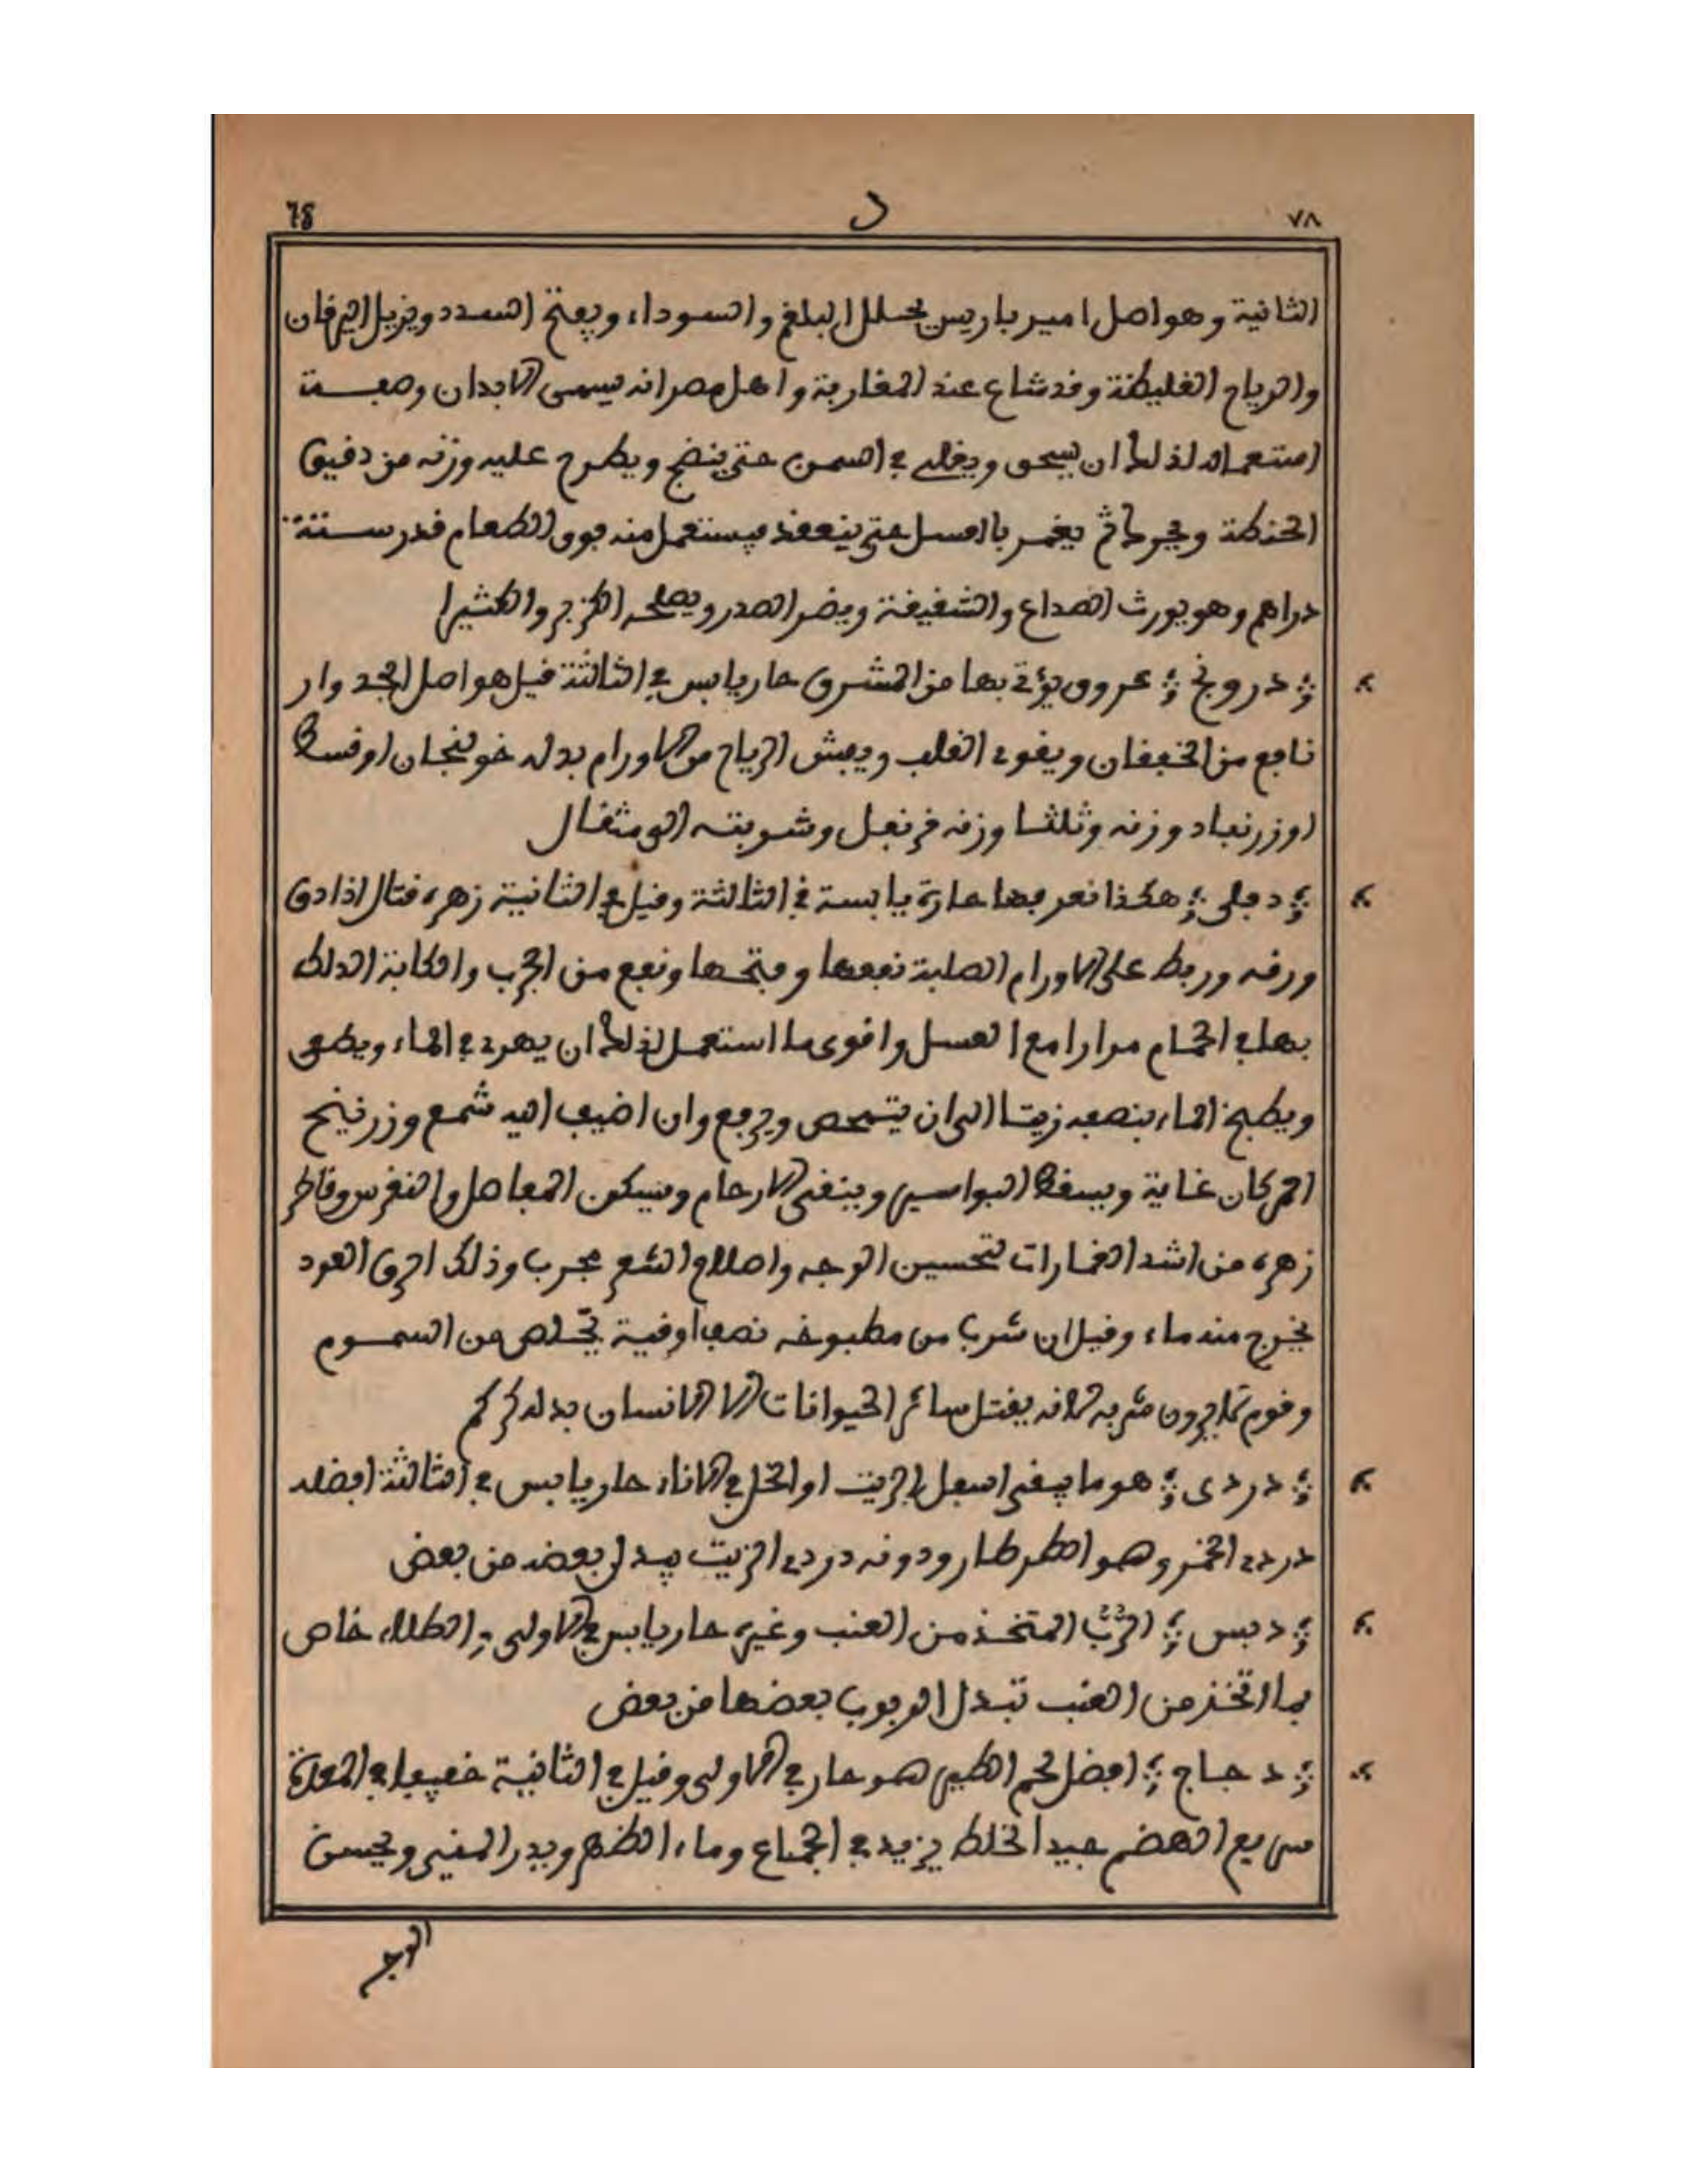 ٧٨ د 78
الثانية وهو اصل امير باريس يحلل البلغم والسوداء ويفتح السدد ويزيل اليرقان
والرياح الغليظة وقد شاع عند المغاربة واهل مصر انه يسمن الابدان وصفة
استعماله لذلك ان يسحق ويغلى في السمن حتى ينضج ويطرح عليه وزنه من دقيق
الحنطة ويحرك ثم يغمر بالعسل حتى ينعقد فيستعمل منه فوق الطعام قدر ستة
دراهم وهو يورث الصداع والشقيقة ويضر الصدر ويصلحه الكزبر والكثيرا
؞ درونج ؞ عروق يؤتى بها من المشرق حار يابس في الثالثة قيل هو اصل الجدوار
نافع من الخفقان ويقوى القلب ويفش الرياح من الاورام بدله خولنجان او قسط
او زرنباد وزنه وثلثا وزنه قرنفل وشربته الى مثقال
؞ دفلى ؞ هكذا نعرفها حارة يابسة في الثالثة وقيل في الثانية زهره قتال اذا دق
ورقه وربط على الاورام الصلبة نفعها وفتحها ونفع من الجرب والحكة الدلك
بها في الحمام مرارا مع العسل واقوى ما استعمل لذلك ان يهرى في الماء ويصفى
ويطبخ الماء بنصفه زيتا الى ان يتمحص ويرفع وان اضيف اليه شمع وزرنيخ
احمر كان غاية ويسقط البواسير وينقى الارحام ويسكن المفاصل والنقرس وقاطر
زهره من اشد الغمارات لتحسين الوجه واصلاح الشعر مجرب وذلك احرق العود
يخرج منه ماء وقيل ان شرب من مطبوخه نصف اوقية يخلص من السموم
وقوم لا يرون شربه لانه يقتل سائر الحيوانات الا الانسان بدله كركم
؞ دردى ؞ هو ما يبقى اسفل الزيت او الخل في الاناء حار يابس في الثالثة افضله
دردى الخمر وهو الطرطار ودونه دردى الزيت يبدل بعضه من بعض
؞ دبس ؞ الرُّبّ المتخذ من العنب وغيره حار يابس في الاولى والطلاء خاص
بما اتخذ من العنب تبدل الربوب بعضها من بعض
؞ دجاج ؞ افضل لحم الطير هو حار في الاولى وقيل في الثانية خفيف في المعدة
سريع الهضم جيد الخلط يزيد في الجماع وماء الظهر ويدر المنى ويحسن
الوجه